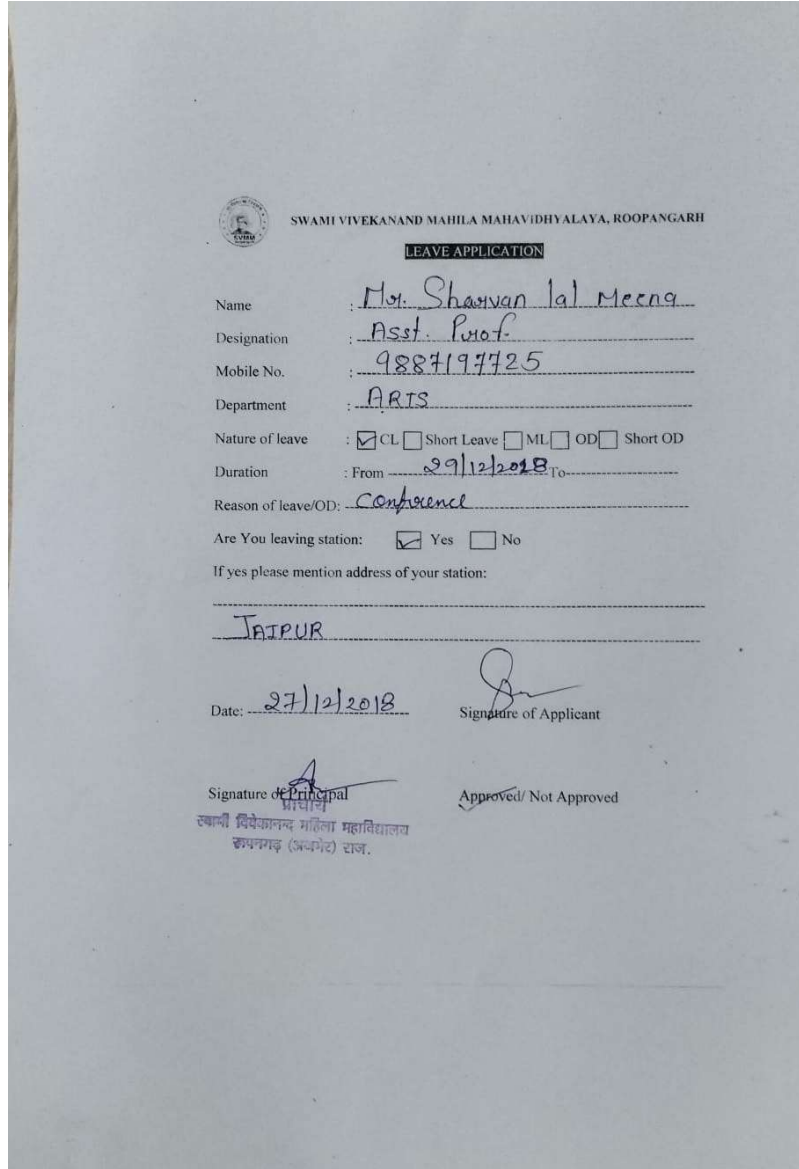 SVMM
SWAMI VIVEKANAND MAHILA MAHAVIDHYALAYA, ROOPANGARH
LEAVE APPLICATION
Name : Mr. Sharvan lal Meena
Designation : Asst. Prof.
Mobile No. : 9887197725
Department : ARTS
Nature of leave : CL Short Leave ML OD Short OD
Duration : From 29/12/2018 To
Reason of leave/OD: Confrence
Are You leaving station: Yes No
If yes please mention address of your station:
JAIPUR
Date: 27/12/2018 Signature of Applicant
Signature of Principal Approved/ Not Approved
प्राचार्य
स्वामी विवेकानन्द महिला महाविद्यालय
रूपनगढ़ (अजमेर) राज.